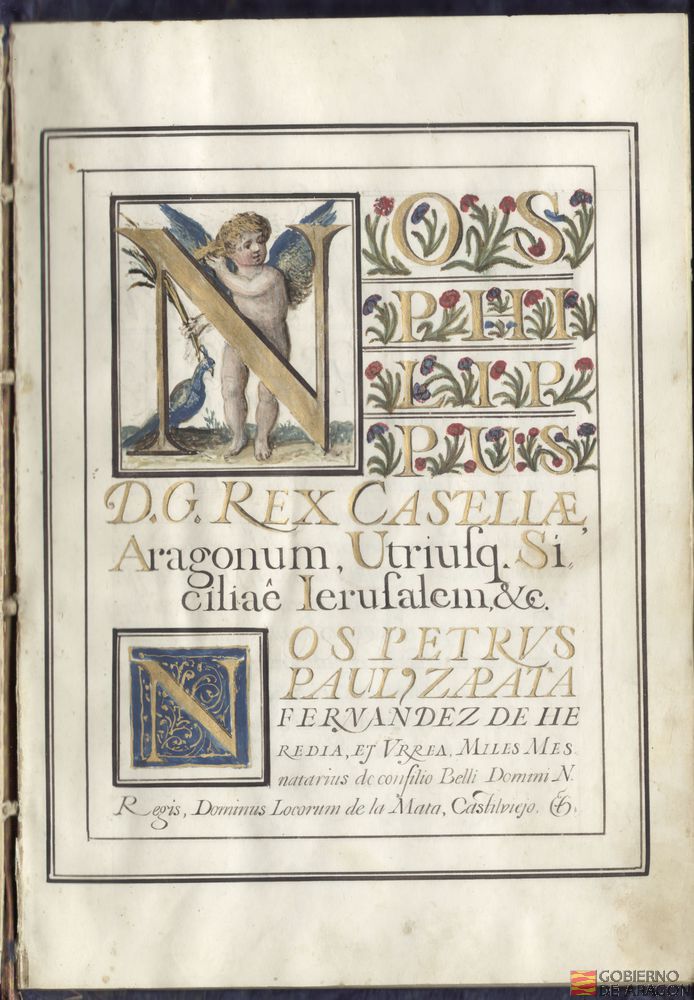 NOS
PHI
LIP
PUS
D.G. REX CASELLÆ,
Aragonum, Utriuſq. Si,
ciliaê Ieruſalem, &c.
NOS PETRVS
PAULZAPATA
FERNANDEZ DE HE
REDIA, ET VRREA, MILES MES
natarius de conſilio Belli Domini N.
Regis, Dominus Locorum de la Mata, Castilviejo. &.
GOBIERNO
DE ARAGON